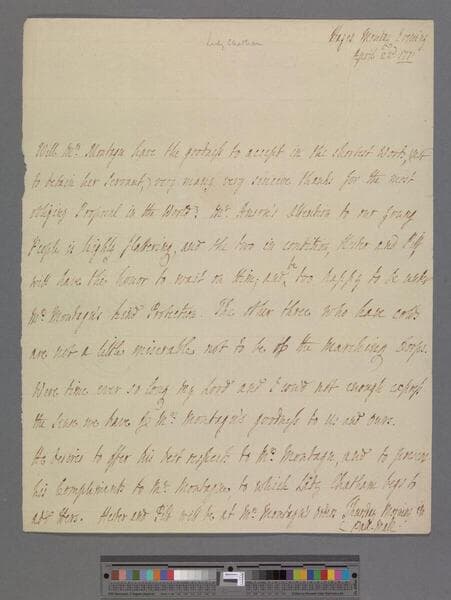 Lady Chatham
Hayes Monday Evening
April 22d 1771
Will Mrs. Montagu have the goodness to accept in the shortest Words, not
to detain her Servant, very many, very sincere thanks for the most
obliging Proposal in the World? Mr. Anson's Attention to our young
People is highly flattering, and the two in condition, Hester and Pitt
will have the honor to wait on Him, and be too happy to be under
Mrs. Montagu's kind Protection. The other three who have colds
are not a little miserable not to be of the marching Corps.
Were time ever so long my Lord and I could not enough express
the sense we have of Mrs. Montagu's goodness to us and ours.
He desires to offer his best respects to Mrs. Montagu, and to present
his Compliments to Mr. Montagu, to which Lady Chatham begs to
add Hers. Hester and Pitt will be at Mrs. Montagu's orders Thursday Morning in
Pall-Mall